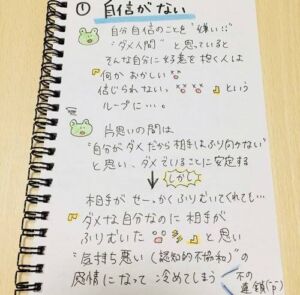 ① 自信がない
自分自信のことを"嫌い!!"
"ダメ人間"と思っていると
そんな自分に好意を抱く人は
『何かおかしい
信じられない。』という
ループに…。
片思いの間は
"自分がダメだから相手はふり向かない"
と思い、ダメでいることに安定する
しかし
相手がせーっかくふりむいてくれても…
『ダメな自分なのに相手が
ふりむいた』と思い
"気持ち悪い(認知的不協和)"の
感情になって冷めてしまう
不の
連鎖